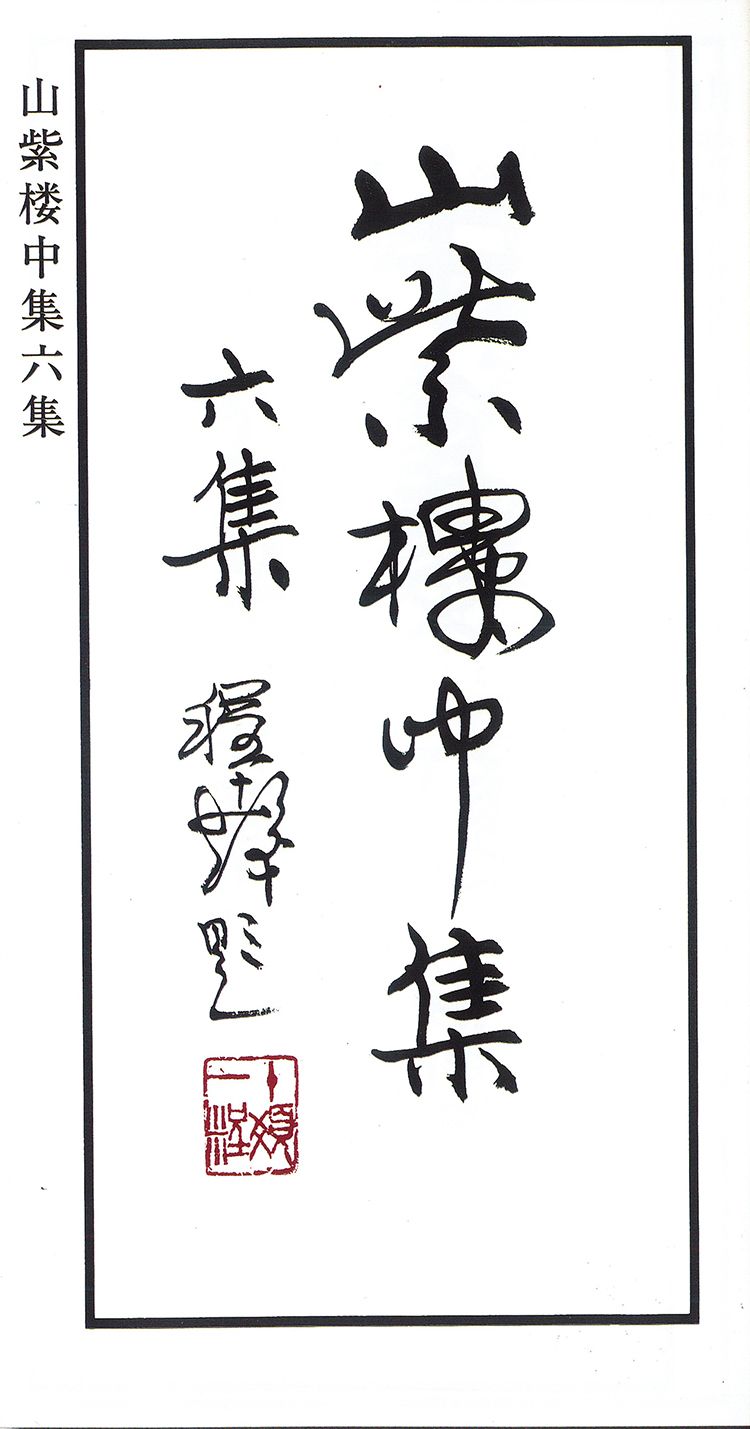 山紫樓中集
六集
程十髮題
山紫楼中集六集